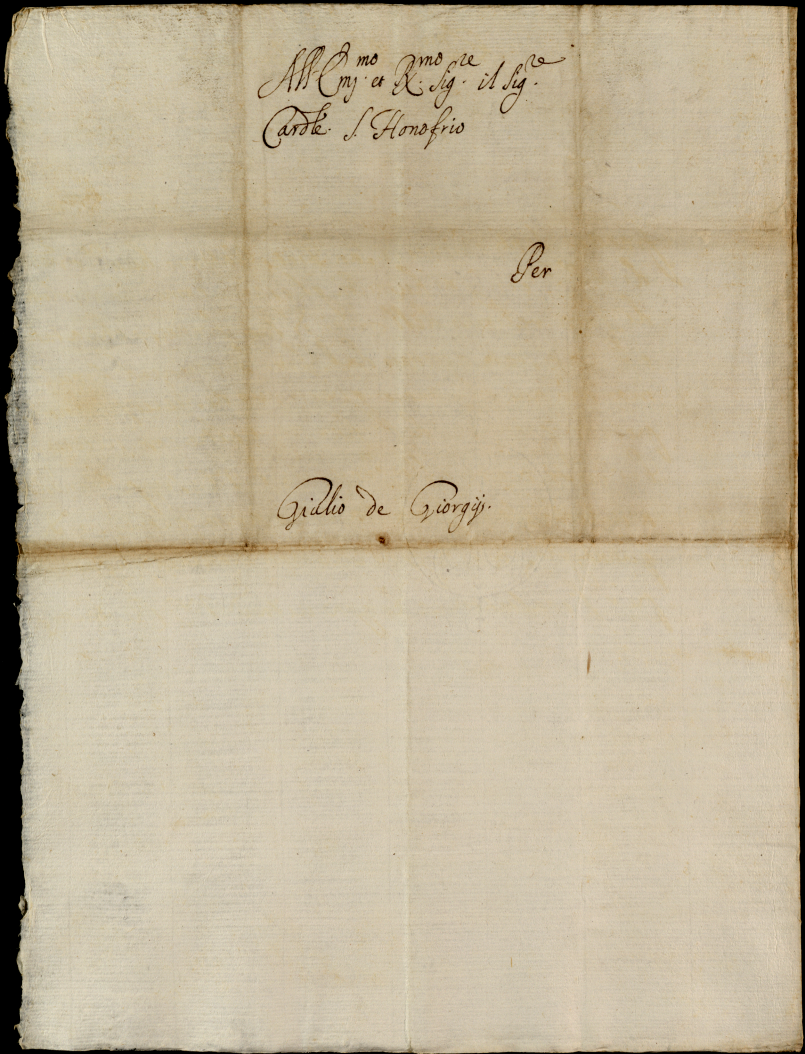 All' Emj.mo et R.mo Sig.re il Sig.re
Cardle. S. Honofrio
Per
Giulio de Giorgijs.